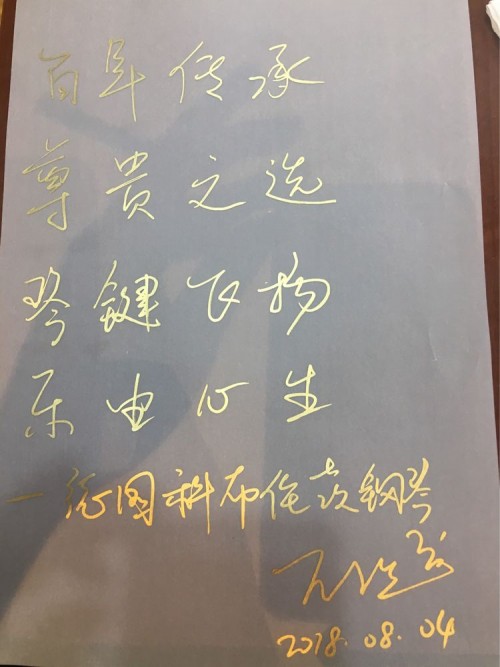 百年传承
尊贵之选
琴键飞扬
乐由心生
—德国科布伦茨钢琴
2018.08.04